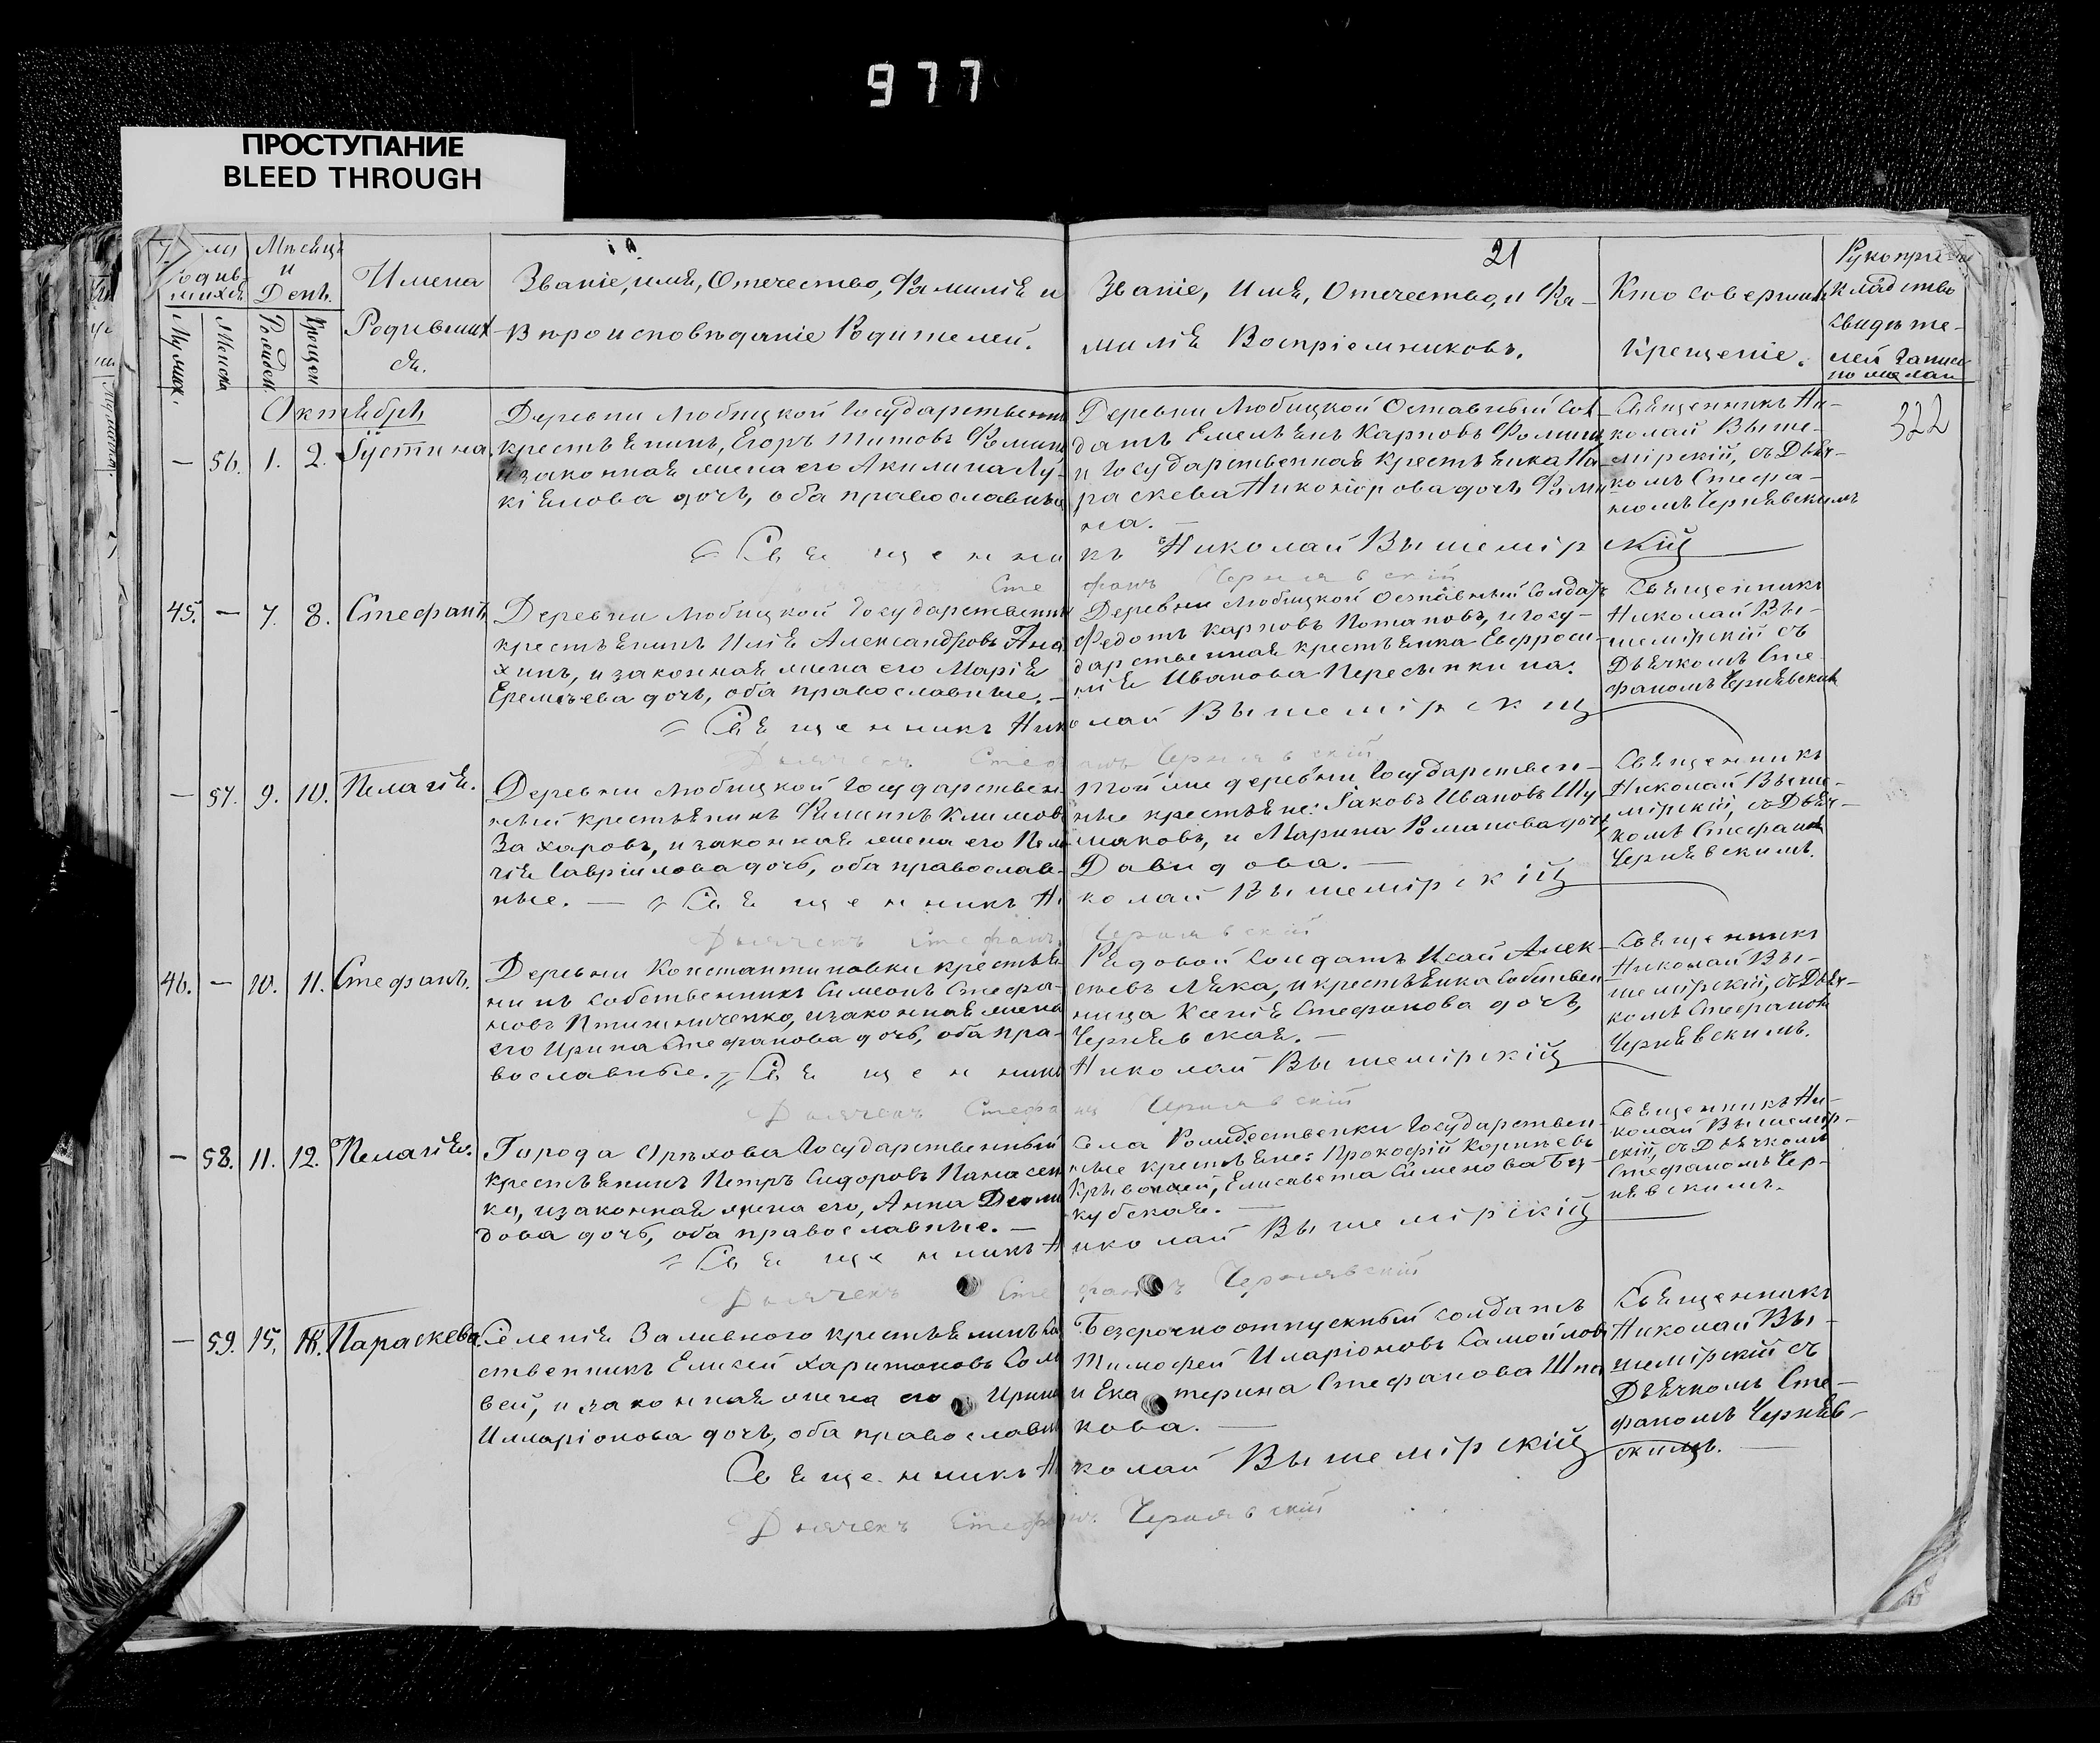 977
ПРОСТУПАНИЕ
BLEED THROUGH
21
322
Мѣсяцъ
и
День.
Имена
Родивших
ся.
Званіе, имя, Отечество, Фамилія и
Вѣроисповѣданіе Родителей.
Званіе, Имя, Отечество, и Фа-
милія Воспріемниковъ.
Кто совершилъ
Крещеніе.
Рукопри-
кладство
свидѣте-
лей записи
по желан
Октябрь
— 56. 1. 2. Іустина.
Деревни Любицкой Государственн
крестьянинъ, Егоръ Титовъ Фоминъ
и законная жена его Акилина Лу-
кіянова дочь, оба православны
Деревни Любицкой Отставный Сол-
датъ Емельянъ Карповъ Фомин
и Государственная крестьянка Па-
раскева Никонорова дочь Фоми
на. —
Священникъ Ни-
колай Выше-
мірскій, съ Дьяч-
комъ Стефа-
номъ Чернявскимъ
Священникъ Николай Вышемірскій
Стефанъ Чернявскій
45. — 7. 8. Стефанъ
Деревни Любицкой Государственны
крестьянинъ Илія Александровъ Ана
хинъ, и законная жена его Марія
Еремѣева дочь, оба православные. —
Деревни Любицкой Отставный Солдатъ
Федотъ Карповъ Потаповъ, и Госу-
дарственная крестьянка Евфроси-
нія Иванова Пересыпкина.
Священникъ
Николай Вы-
шемірскій съ
Дьячкомъ Сте-
фаномъ Чернявским
Священникъ Николай Вышемірскій
Дьячекъ Стефанъ Чернявскій
— 57. 9. 10. Пелагія.
Деревни Любицкой Государствен
ный крестьянинъ Филиппъ Климовъ
Захаровъ, и законная жена его Пела
гія Гавріилова дочь, оба православ-
ные. —
Той же деревни Государствен-
ные крестьяне: Іаковъ Ивановъ Шу
маковъ, и Марина Романова дочь
Давидова. —
Священникъ
Николай Выше-
мірскій, съ Дьяч-
комъ Стефаном
Чернявскимъ.
Священникъ Николай Вышемірскій
Дьячекъ Стефанъ Чернявскій
46. — 10. 11. Стефанъ.
Деревни Константиновки крестья
нинъ собственникъ Симеонъ Стефа-
новъ Птишниченко, и законная жена
его Ирина Стефанова дочь, оба пра-
вославные.
Рядовой Солдатъ Исай Алек-
сѣевъ Ляка, и крестьянка Собствен-
ница Ксенія Стефанова дочь,
Чернявская. —
Священникъ
Николай Вы-
шемірскій, съ Дьяч-
комъ Стефаном
Чернявскимъ.
Священникъ Николай Вышемірскій
Дьячекъ Стефанъ Чернявскій
— 58. 11. 12. Пелагія.
Города Орѣхова Государственный
крестьянинъ Петръ Сидоровъ Панасен
ко, и законная жена его, Анна Деоми
дова дочь, оба православные. —
Села Рождественки Государствен-
ные крестьяне: Прокофій Корнѣевъ
Елисавета Сименова Бу-
кубская. —
Священникъ Ни-
колай Вышемір-
скій, съ Дьячкомъ
Стефаномъ Чер-
нявскимъ.
Священникъ Николай Вышемірскій
Дьячекъ Стефанъ Чернявскій
— 59. 15. Параскева.
Селенія Заливного крестьянинъ со
ственникъ Елисей Харитоновъ Соло
вей, и законная жена его Ирина
Илларіонова дочь, оба православн
Безсрочноотпускный солдатъ
Тимофей Иларіоновъ Самойлов
и Екатерина Стефанова Шпа
кова. —
Священникъ
Николай Вы-
шемірскій съ
Дьячкомъ Сте-
фаномъ Черняв-
скимъ. —
Священникъ Николай Вышемірскій
Дьячекъ Стефанъ Чернявскій